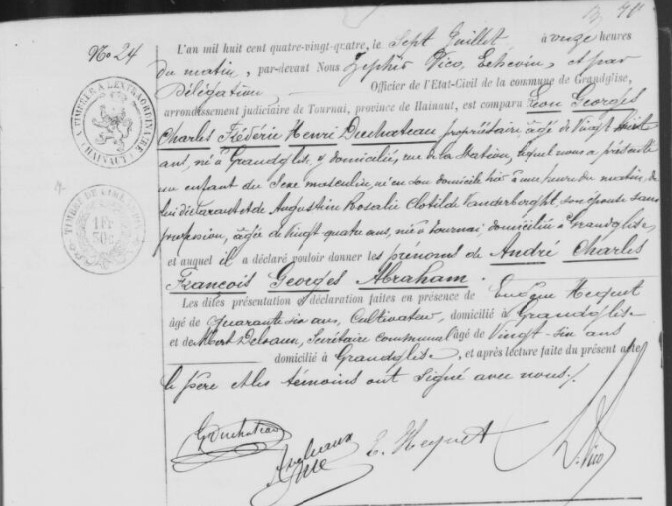 No 24
L'an mil huit cent quatre-vingt-quatre, le Sept Juillet à onze heures
du matin, par-devant Nous Zéphir Pico, Echevin, et par
Délégation Officier de l'Etat-Civil de la commune de Grandglise,
arrondissement judiciaire de Tournai, province de Hainaut, est comparu Léon Georges
Charles Fréderic Henri Duchateau propriétaire, âgé de Vingt
ans, né à Grandglise, y domicilié, rue de la Station, lequel nous a présenté
un enfant du Sexe masculin, né en son domicile hier à une heure du matin, de
lui déclarant et de Augustine Rosalie Clotilde Vanderborght, son épouse sans
profession, âgée de Vingt quatre ans, née à Tournai, domiciliée à Grandglise,
et auquel il a déclaré vouloir donner les prénoms de André Charles
François Georges Abraham.
Les dites présentation & déclaration faites en présence de Hequet
âgé de Quarante six ans, Cultivateur, domicilié à Grandglise
et de Albert Delvaux, Secrétaire communal âgé de Vingt-six ans
domicilié à Grandglise, et après lecture faite du présent acte
le père et les témoins ont signé avec nous.
G Duchateau
A Delvaux
E. Hequet
Z. Pico
TIMBRE A L'EXTRAORDINAIRE
1 Fr
50c